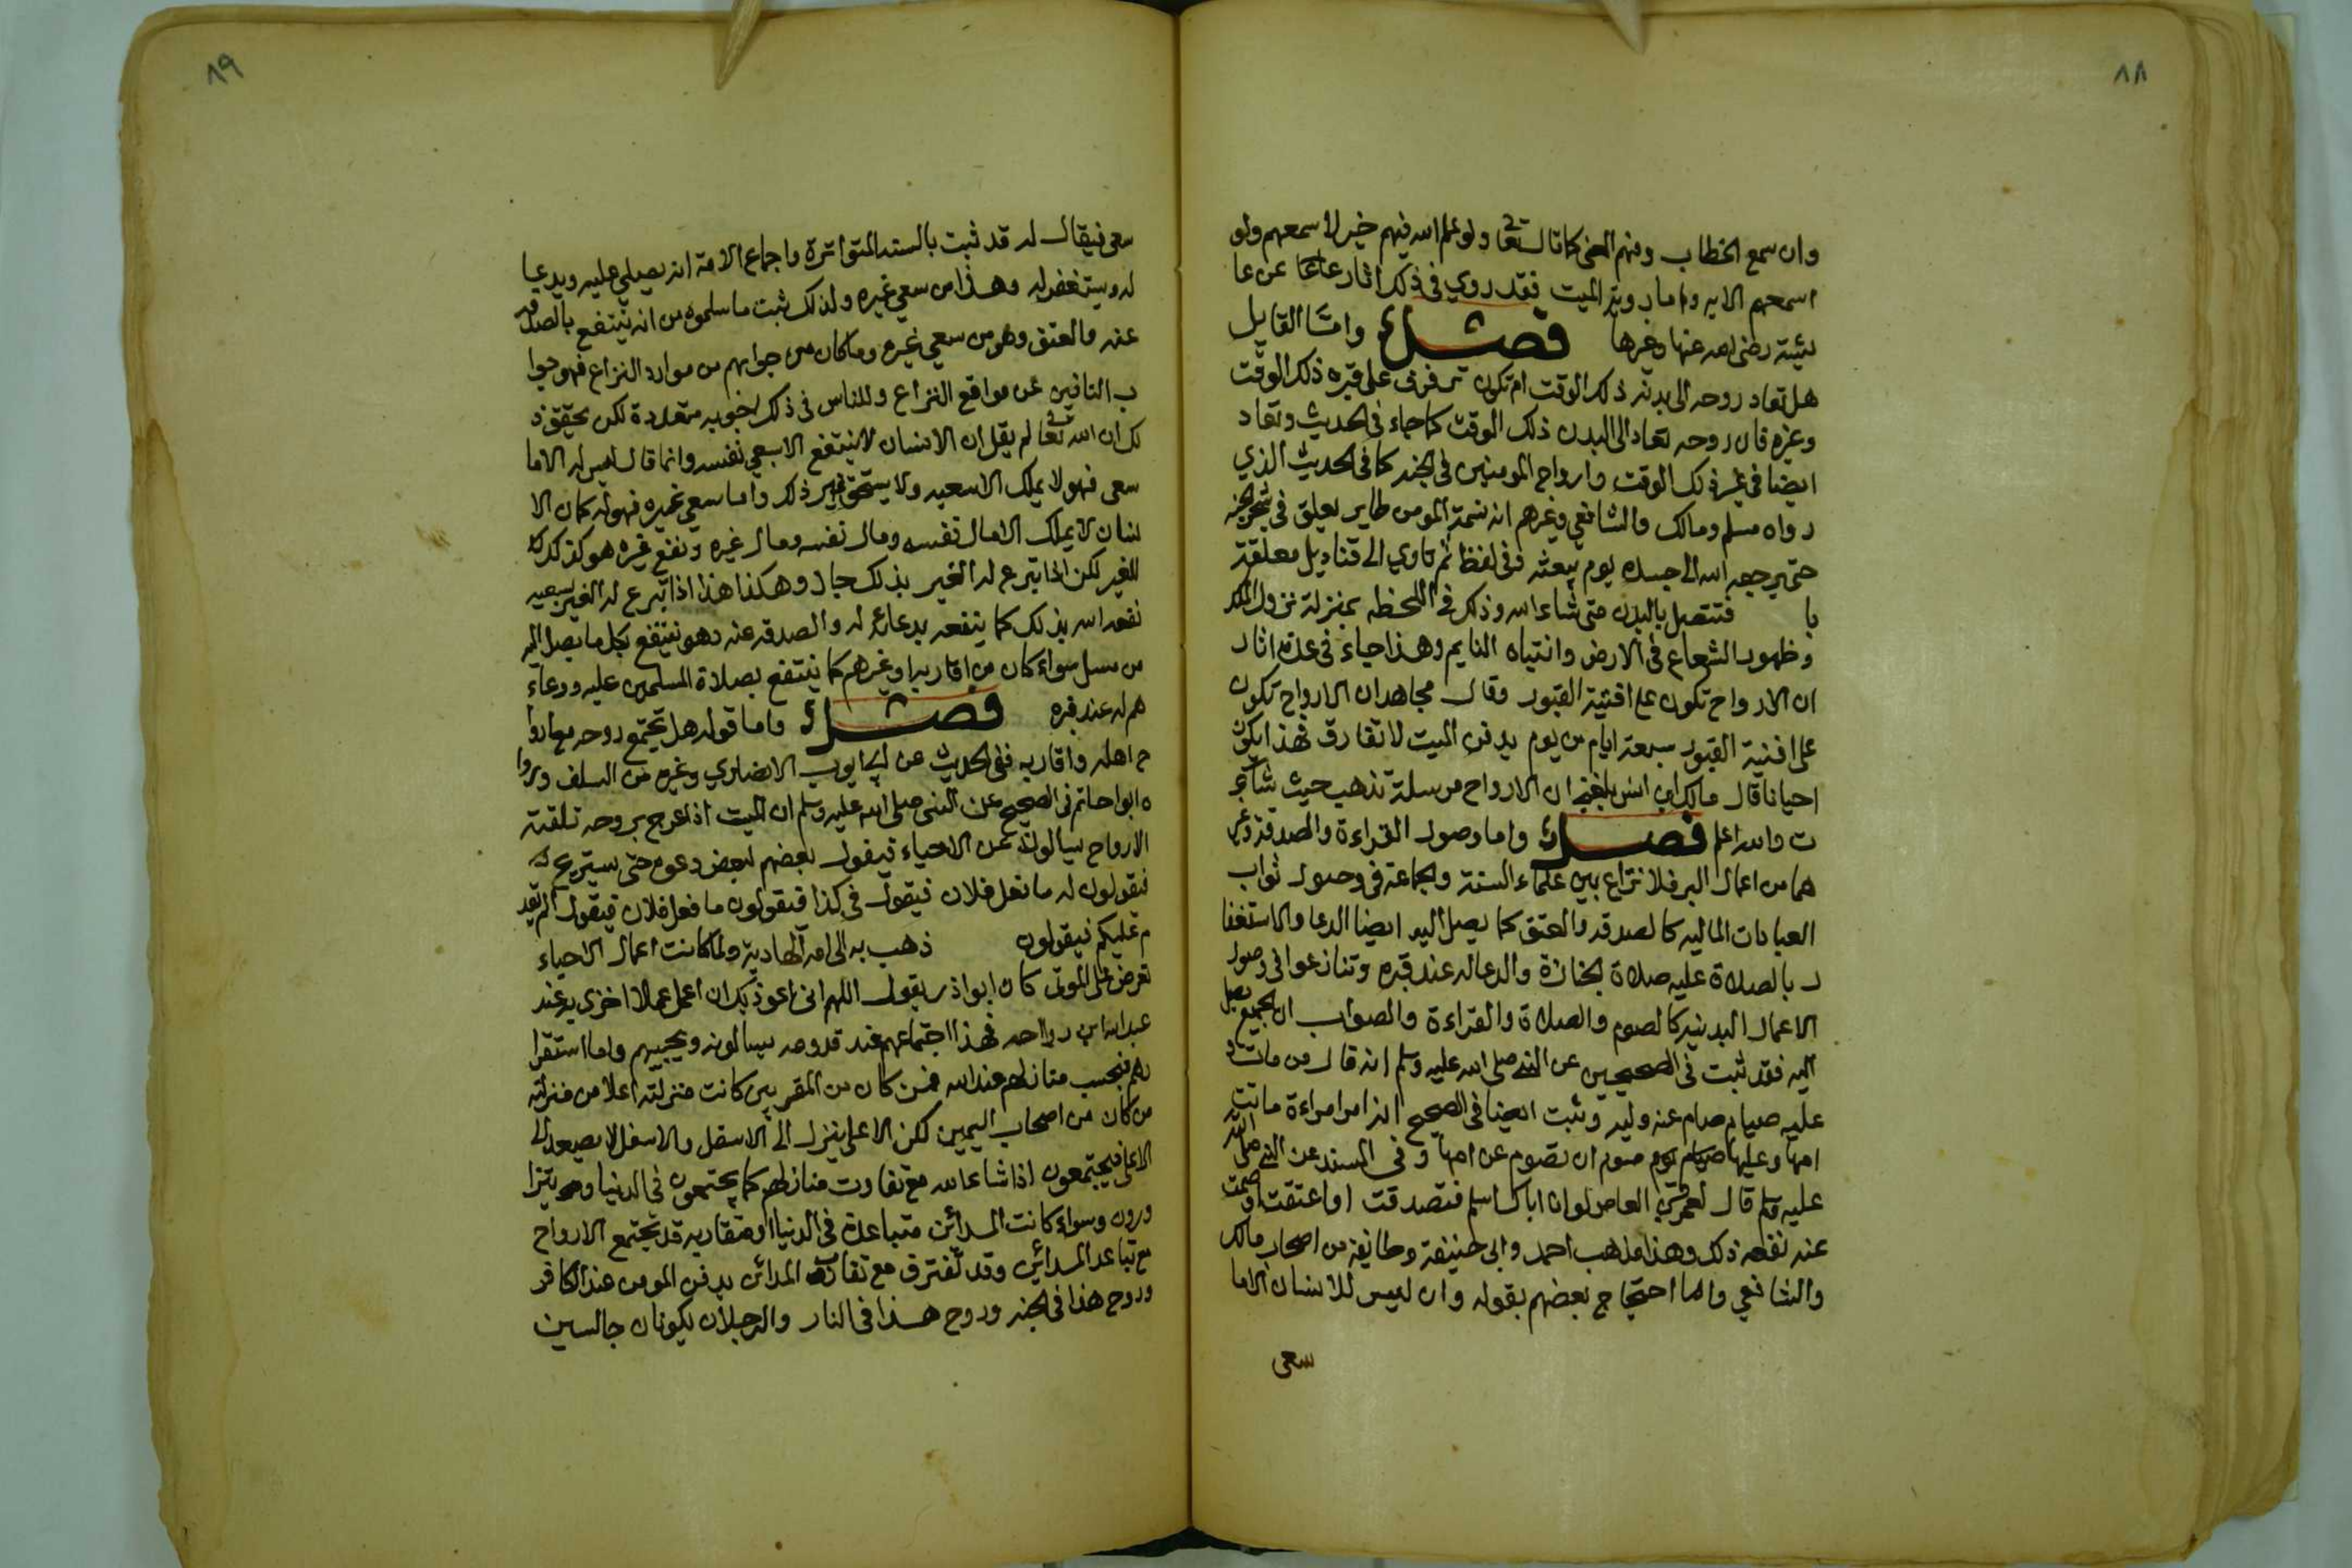 ٨٨
وان سمع الخطاب وفهم المعنى كما قال تعا ولو علم الله فيهم خيرا لاسمعهم ولو
اسمعهم الايه واما روية الميت فقد روي في ذلك اثار عن عا
ئيشة رضى الله عنها وغيرها فصل واما القايل
هل تعاد روحه الى بدنه ذلك الوقت ام تكون ترفرف على قبره ذلك الوقت
وغيره فان روحه تعاد الى البدن ذلك الوقت كما جاء في الحديث وتعاد
ايضا في غير ذلك الوقت وارواح المومنين في الجنه كما في الحديث الذي
رواه مسلم ومالك والشافعي وغيرهم ان نسمة المومن طاير يعلق في شجر الجنه
حتى يرجعه الله الى جسده يوم يبعثه وفي لفظ ثم تاوي الى قناديل معلقة
با فتتصل بالبدن متى شاء الله وذلك في اللحظه بمنزلة نزول الملك
وظهور الشعاع في الارض وانتباه النايم وهذا جاء في عدة اثار
ان الارواح تكون على افنية القبور وقال مجاهد ان الارواح تكون
على افنية القبور سبعة ايام من يوم يدفن الميت لا تفارق فهذا يكون
احيانا قال مالك ابن انس بلغني ان الارواح مرسلة تذهب حيث شآء
ت والله اعلم فصل واما وصول القراءة والصدقة وغير
هما من اعمال البر فلا نزاع بين علماء السنة والجماعة في وصول ثواب
العبادات الماليه كالصدقه والعتق كما يصل اليه ايضا الدعا والاستغفا
ر بالصلاة عليه صلاة الجنازة والدعا له عند قبره وتنازعوا في وصول
الاعمال البدنيه كالصوم والصلاة والقراءة والصواب ان الجميع يصل
اليه فقد ثبت في الصحيحين عن النبي صلى الله عليه وسلم انه قال من مات و
عليه صيام صام عنه وليه وثبت ايضا في الصحيح انه امر امراءة ماتت
امها وعليها صيام صوم ان تصوم عن امها وفي المسند عن النبي صلى الله
عليه وسلم قال لعمر بن العاص لو ان اباك اسلم فتصدقت او اعتقت او صمت
عنه نفعه ذلك وهذا مذهب احمد وابى حنيفة وطايفة من اصحاب مالك
والشافعي واما احتجاج بعضهم بقوله وان ليس للانسان الا ما
سعى
٨٩
سعى فيقال له قد ثبت بالسنه المتواترة واجماع الامة انه يصلى عليه ويدعيا
له ويستغفر له وهذا من سعي غيره ولذلك ثبت ما سلموه من انه ينتفع بالصدقه
عنه والعتق وهو من سعي غيره وما كان من جوابهم من موارد النزاع فهو جوا
ب التانين عن مواقع النزاع وللناس في ذلك اجوبه متعددة لكن تحقيق ذ
لك ان الله تعا لم يقل ان الانسان لا ينتفع الا بسعي نفسه وانما قال ليس له الا ما
سعى فهو لا يملك الا سعيه ولا يستحق غير ذلك واما سعي غيره فهو له كما ان الا
نسان لا يملك الا مال نفسه ومال نفسه ومال غيره ونفع غيره هو كذلك
للغير لكن اذا تبرع له الغير بذلك جاز وهكذا هذا اذا تبرع له الغير بسعيه
نفعه الله بذلك كما ينفعه بدعائه له والصدقه عنه وهو ينتفع بكل ما يصل اليه
من مسلم سواء كان من اقاربه او غيرهم كما ينتفع بصلاة المسلمين عليه ودعاء
هم له عند قبره فصل واما قوله هل تجتمع روحه مع اروا
ح اهله واقاربه ففى الحديث عن ابي ايوب الانصاري وغيره من السلف وروا
ه ابوا حاتم في الصحيح عن النبى صلى الله عليه وسلم ان الميت اذا عرج بروحه تلقته
الارواح يسالونه عن الاحياء فيقول بعضهم لبعض دعوه حتى يستريح
فيقولون له ما فعل فلان فيقول في كذا فيقولون ما فعل فلان فيقول الم يقد
م عليكم فيقولون ذهب به الى امه الهاوية ولما كانت اعمال الاحياء
تعرض على الموتى كان ابوا ذر يقول اللهم انى اعوذ بك ان اعمل عملا اخزى به عند
عبد الله ابن رواحه فهذا اجتماعهم عند قدومه يسالونه ويجيبهم واما استقرا
رهم فبحسب منازلهم عند الله فمن كان من المقربين كانت منزلته اعلا من منزلته
من كان من اصحاب اليمين لكن الاعلى ينزل الى الاسفل والاسفل لا يصعد الى
الاعلى فيجتمعون اذا شاء الله مع تفاوت منازلهم كما يجتمعون في الدنيا وهو يتزا
ورون وسواء كانت المدائن متباعدة في الدنيا او متقاربه قد تجتمع الارواح
مع تباعد المدائن وقد تفترق مع تقارب المدائن يدفن المومن عند الكافر
وروح هذا في الجنه وروح هذا في النار والرجلان يكونان جالسين